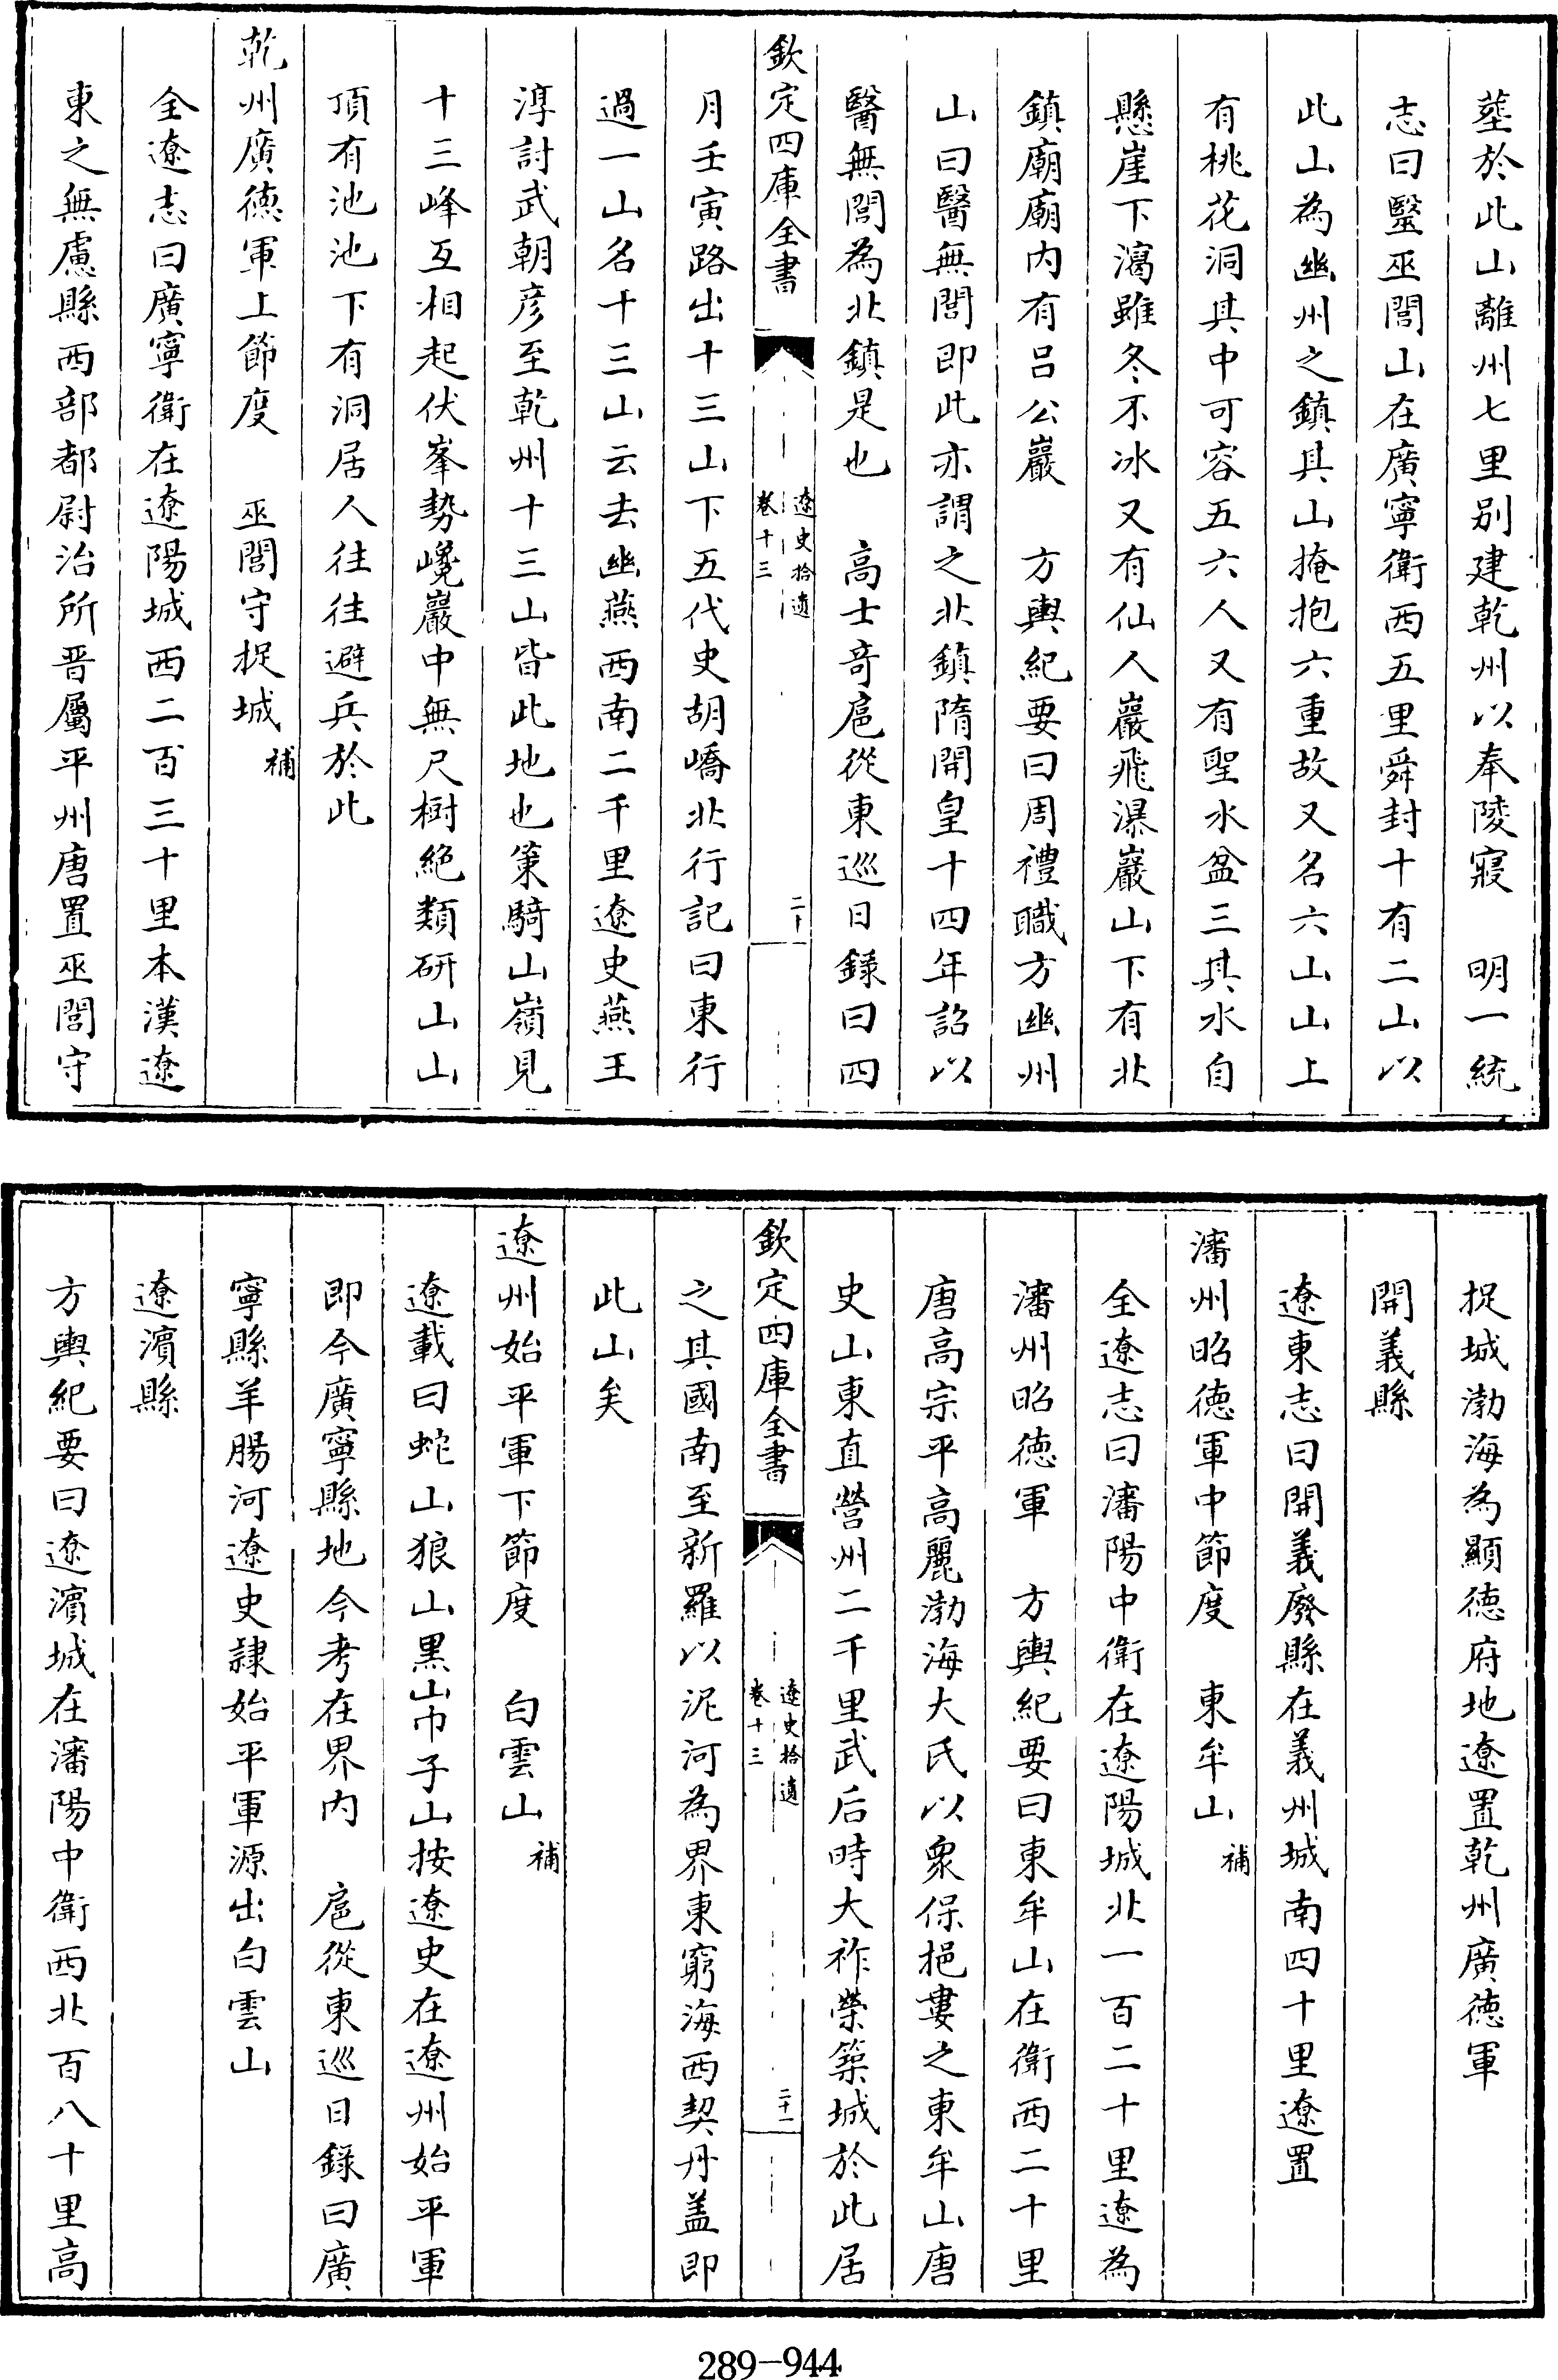 塟於此山離州七里别建乾州以奉陵寢　明一統
志曰毉巫閭山在廣寧衛西五里舜封十有二山以
此山為幽州之鎮其山掩抱六重故又名六山山上
有桃花洞其中可容五六人又有聖水盆三其水自
懸崖下瀉雖冬不冰又有仙人巖飛瀑巖山下有北
鎮廟廟内有吕公巖　方輿紀要曰周禮職方幽州
山曰醫無閭即此亦謂之北鎮隋開皇十四年詔以
醫無閭為北鎮是也　高士竒扈從東巡日録曰四
欽定四庫全書
遼史拾遺
卷十三
二十
月壬寅路出十三山下五代史胡嶠北行記曰東行
過一山名十三山云去幽燕西南二千里遼史燕王
淳討武朝彦至乾州十三山皆此地也策騎山嶺見
十三峰互相起伏峯勢巉巖中無尺樹絶類研山山
頂有池池下有洞居人往往避兵於此
乾州廣德軍上節度　巫閭守捉城補
全遼志曰廣寧衛在遼陽城西二百三十里本漢遼
東之無慮縣西部都尉治所晋屬平州唐置巫閭守
捉城渤海為顯德府地遼置乾州廣德軍
開義縣
遼東志曰開義廢縣在義州城南四十里遼置
瀋州昭德軍中節度　東牟山補
全遼志曰瀋陽中衛在遼陽城北一百二十里遼為
瀋州昭德軍　方輿紀要曰東牟山在衛西二十里
唐高宗平高麗渤海大氏以衆保挹婁之東牟山唐
史山東直營州二千里武后時大祚榮築城於此居
欽定四庫全書
遼史拾遺
卷十三
二十一
之其國南至新羅以泥河為界東窮海西契丹盖即
此山矣
遼州始平軍下節度　白雲山補
遼載曰蛇山狼山黒山巾子山按遼史在遼州始平軍
即今廣寧縣地今考在界内　扈從東巡日録曰廣
寧縣羊腸河遼史隷始平軍源出白雲山
遼濵縣
方輿紀要曰遼濵城在瀋陽中衛西北百八十里高
289-944